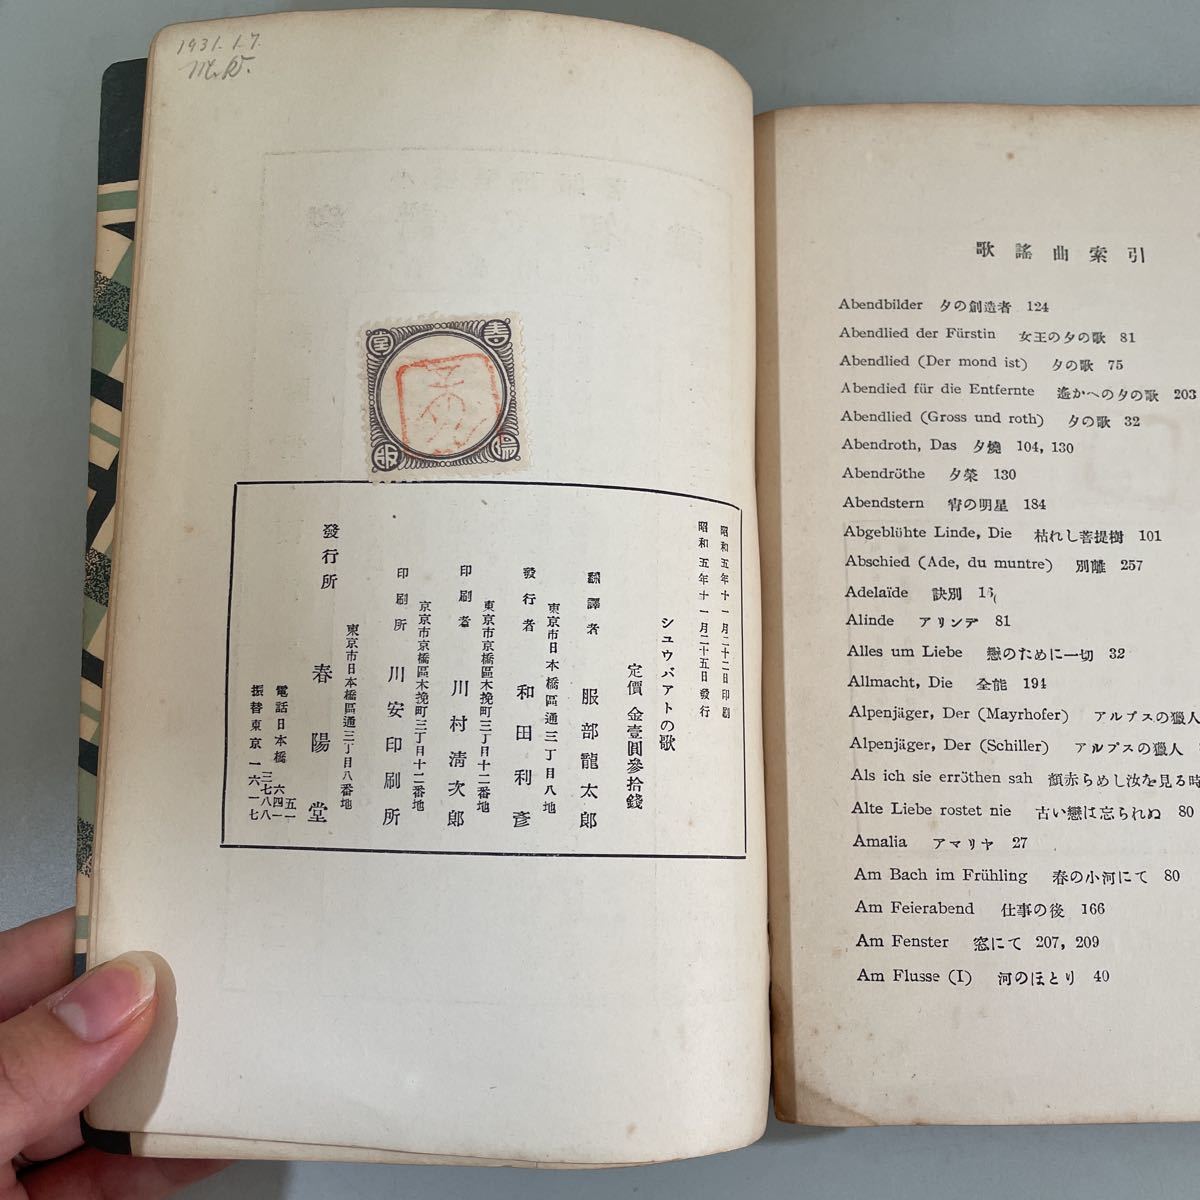 1931.1.7.
M.K.
春
堂
陽
昭和五年十一月二十二日印刷
昭和五年十一月二十五日發行
シユウバアトの歌
定價 金壹圓參拾錢
飜譯者 服部龍太郎
東京市日本橋區通三丁目八地
發行者 和田利彥
東京市京橋區木挽町三丁目十二番地
印刷者 川村清次郎
京京市京橋區木挽町三丁目十二番地
印刷所 川安印刷所
東京市日本橋區通三丁目八番地
發行所 春陽堂
電話日本橋 五一 六四一 三七八八
振替東京一六一七
歌謠曲索引
Abendbilder 夕の創造者 124
Abendlied der Fürstin 女王の夕の歌 81
Abendlied (Der mond ist) 夕の歌 75
Abendied für die Entfernte 遙かへの夕の歌 203
Abendlied (Gross und roth) 夕の歌 32
Abendroth, Das 夕燒 104, 130
Abendröthe 夕榮 130
Abendstern 宵の明星 184
Abgeblühte Linde, Die 枯れし菩提樹 101
Abschied (Ade, du muntre) 別離 257
Adelaïde 訣別 16
Alinde アリンデ 81
Alles um Liebe 戀のために一切 32
Allmacht, Die 全能 194
Alpenjäger, Der (Mayrhofer) アルプスの獵人
Alpenjäger, Der (Schiller) アルプスの獵人
Als ich sie erröthen sah 顏赤らめし汝を見る時
Alte Liebe rostet nie 古い戀は忘られぬ 80
Amalia アマリヤ 27
Am Bach im Frühling 春の小河にて 80
Am Feierabend 仕事の後 166
Am Fenster 窓にて 207, 209
Am Flusse (I) 河のほとり 40